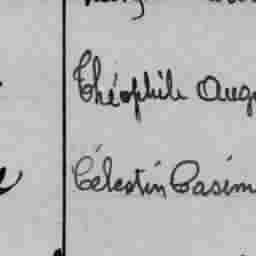 Théophile Aug
Célestin Casim